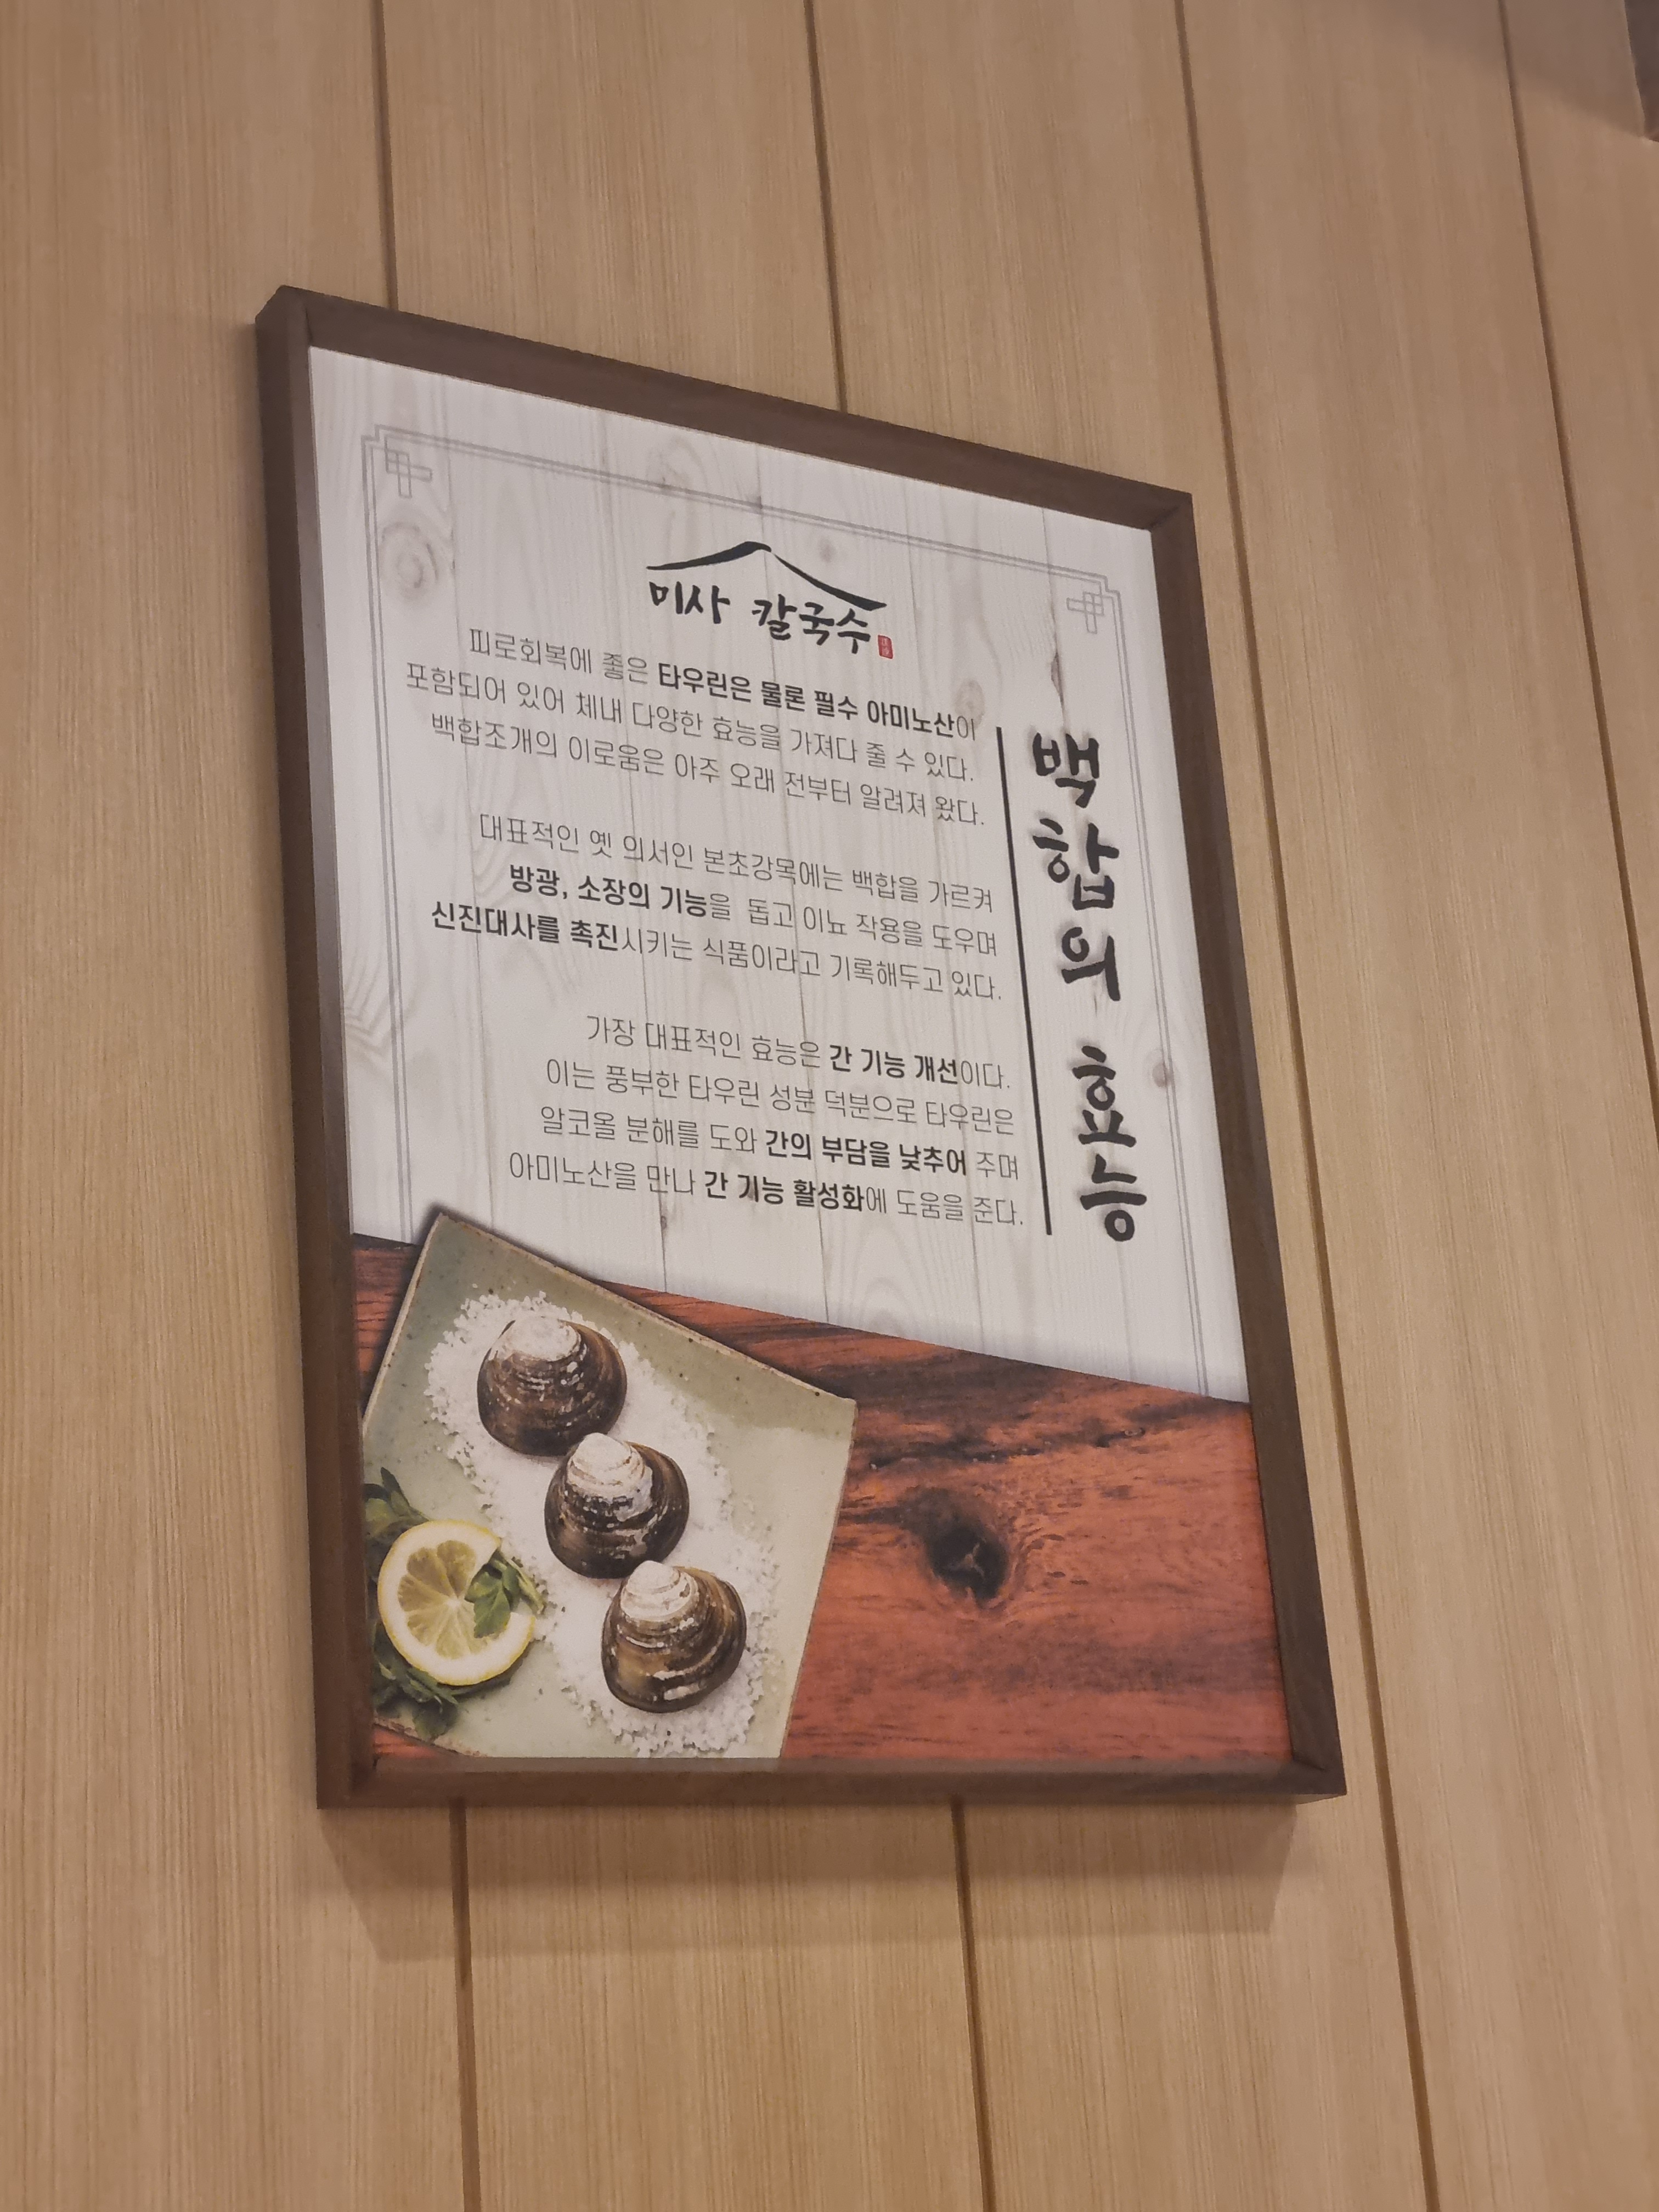 미사 칼국수
백합의 효능
피로회복에 좋은 타우린은 물론 필수 아미노산이
포함되어 있어 체내 다양한 효능을 가져다 줄 수 있다.
백합조개의 이로움은 아주 오래 전부터 알려져 왔다.
대표적인 옛 의서인 본초강목에는 백합을 가르켜
방광, 소장의 기능을 돕고 이뇨 작용을 도우며
신진대사를 촉진시키는 식품이라고 기록해두고 있다.
가장 대표적인 효능은 간 기능 개선이다.
이는 풍부한 타우린 성분 덕분으로 타우린은
알코올 분해를 도와 간의 부담을 낮추어 주며
아미노산을 만나 간 기능 활성화에 도움을 준다.